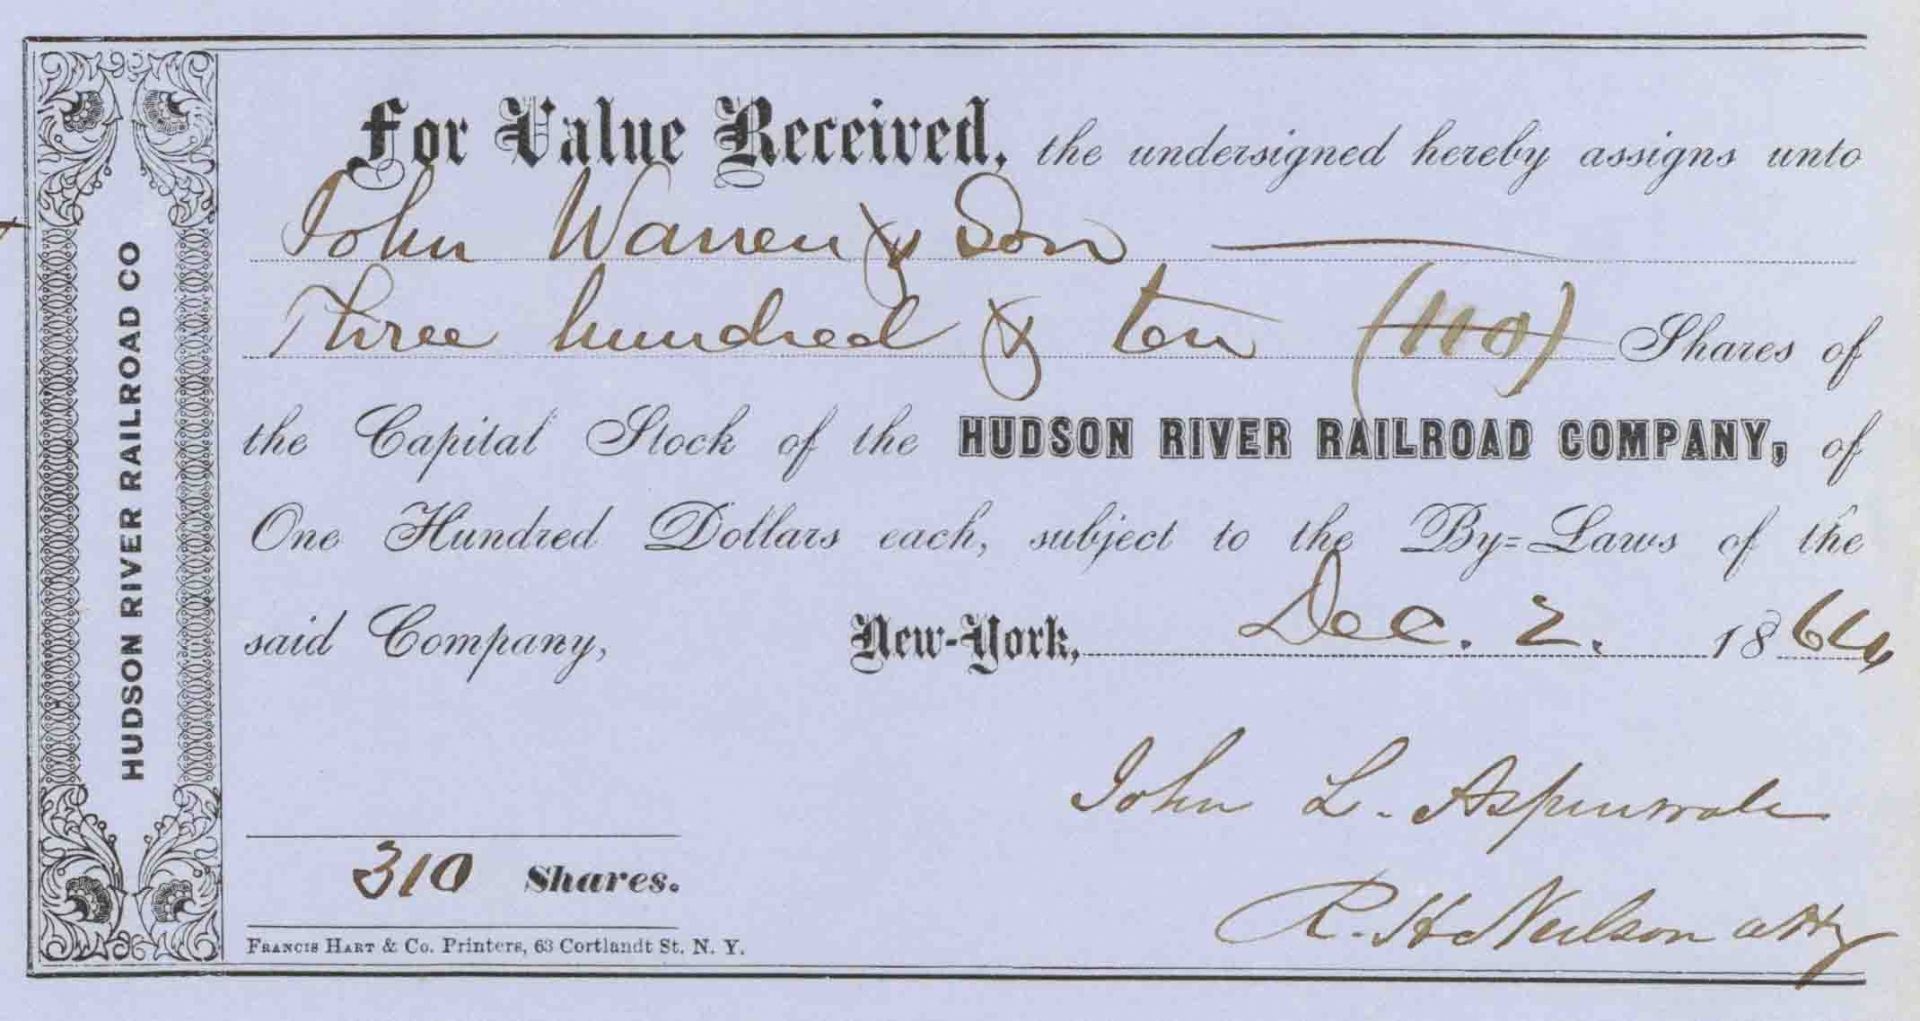 HUDSON RIVER RAILROAD CO
For Value Received, the undersigned hereby assigns unto
John Warren & Son
Three hundred & ten (110) Shares of
the Capital Stock of the HUDSON RIVER RAILROAD COMPANY, of
One Hundred Dollars each, subject to the By=Laws of the
said Company, New-York, Dec. 2. 1864
John L. Aspinwall
310 Shares.
R. H. Neilson atty
FRANCIS HART & Co. Printers, 63 Cortlandt St. N. Y.